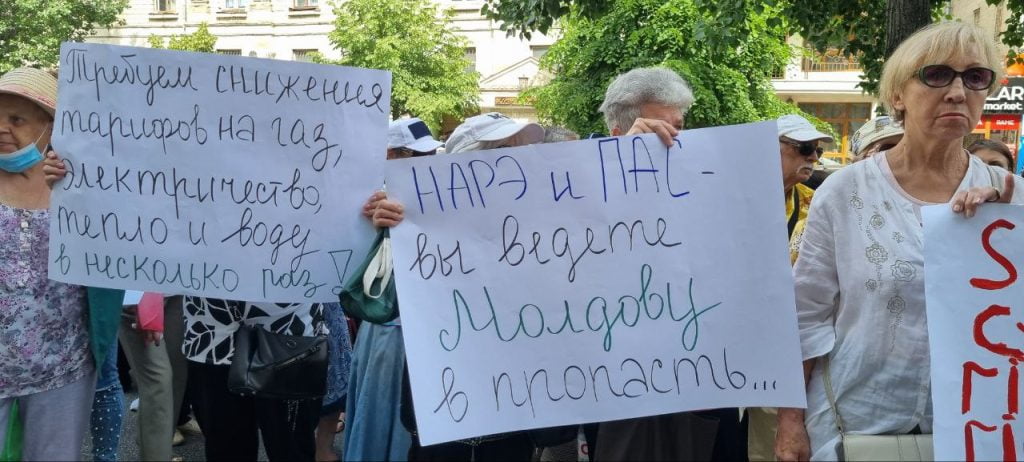 Требуем снижения
тарифов на газ,
электричество,
тепло и воду
в несколько раз!
НАРЭ и ПАС -
вы ведете
Молдову
в пропасть...
market